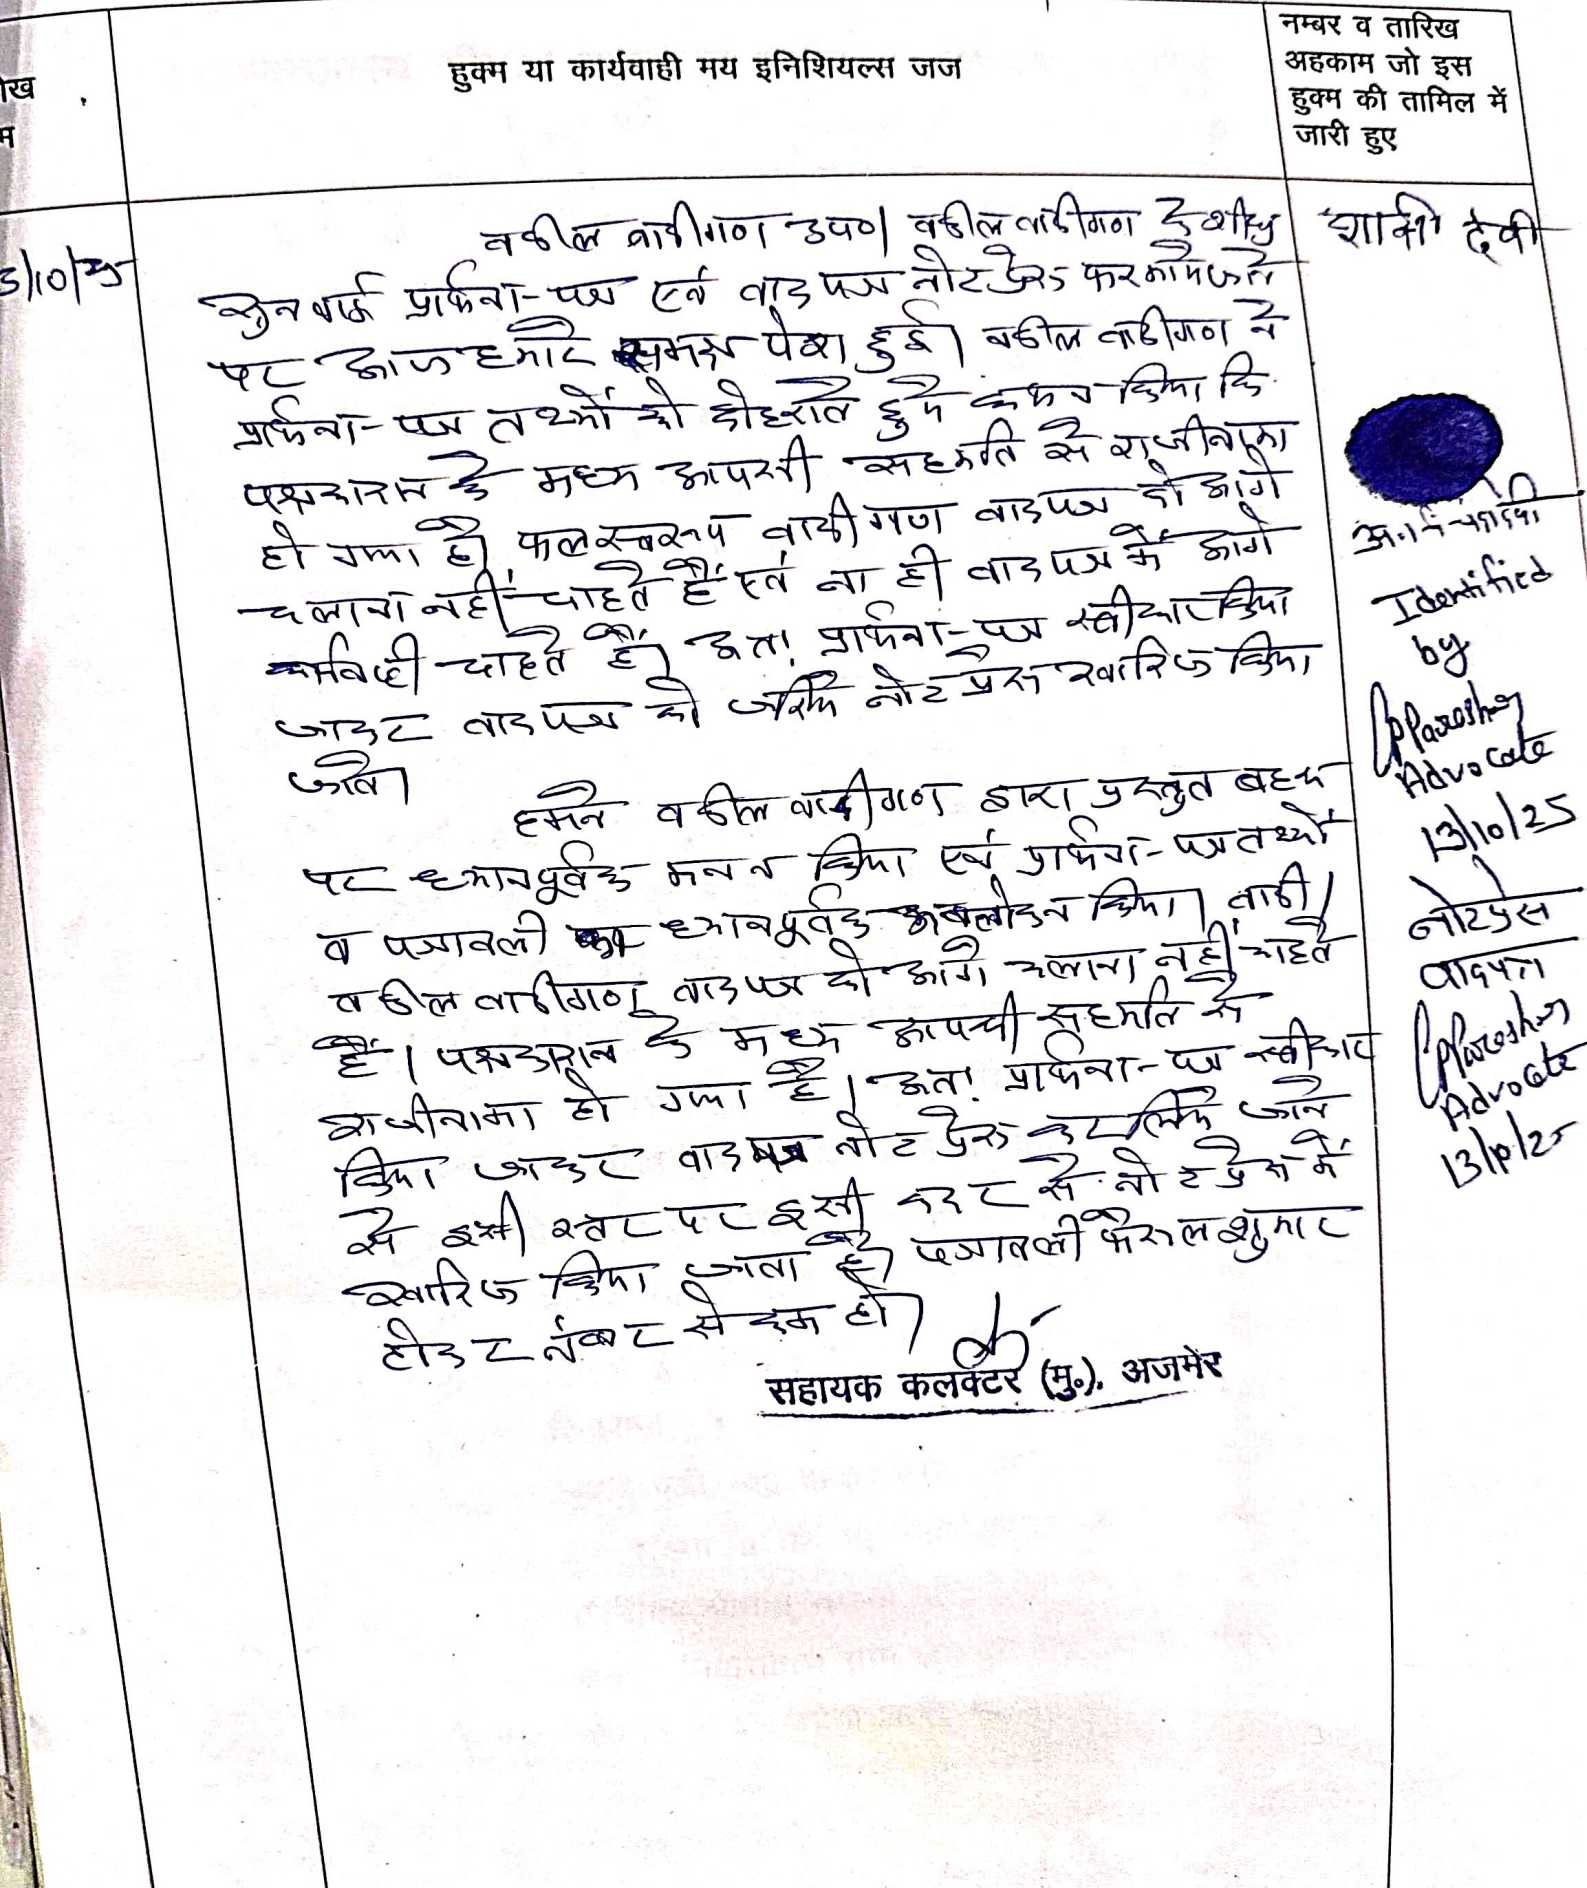 हुक्म या कार्यवाही मय इनिशियल्स जज
नम्बर व तारिख
अहकाम जो इस
हुक्म की तामिल में
जारी हुए
ेख
म
3/10/25
वकील वादीगण उप०। वकील वादीगण के शीघ्र
सुनवाई प्रार्थना-पत्र एवं वाद पत्र नोटप्रेस फरमाये जाने
पर आज हमारे समक्ष पेश हुई। वकील वादीगण ने
प्रार्थना-पत्र तथ्यों को दोहराते हुये कथन किया कि
पक्षकारान के मध्य आपसी सहमति से राजीनामा
हो गया है। फलस्वरूप वादीगण वादपत्र को आगे
चलाना नहीं चाहते हैं एवं ना ही वादपत्र में आगे
कार्यवाही चाहते हैं। अतः प्रार्थना-पत्र स्वीकार किया
जाकर वादपत्र को जरिये नोट प्रेस खारिज किया
जावे।
हमने वकील वादीगण द्वारा प्रस्तुत बहस
पर ध्यानपूर्वक मनन किया एवं प्रार्थना-पत्र तथ्यों
व पत्रावली का ध्यानपूर्वक अवलोकन किया। वादी/
वकील वादीगण वादपत्र को आगे चलाना नहीं चाहते
हैं। पक्षकारान के मध्य आपसी सहमति से
राजीनामा हो गया है। अतः प्रार्थना-पत्र स्वीकार
किया जाकर वादपत्र नोट प्रेस कर लिये जाने
से इसी स्तर पर इसी कदर से नोट प्रेस में
खारिज किया जाता है। पत्रावली फैसल शुमार
होकर नंबर से कम हो।
सहायक कलक्टर (मु०). अजमेर
शान्ति देवी
Identified
by
Advocate
13/10/25
नोटप्रेस
वादपत्र
Advocate
13/10/25